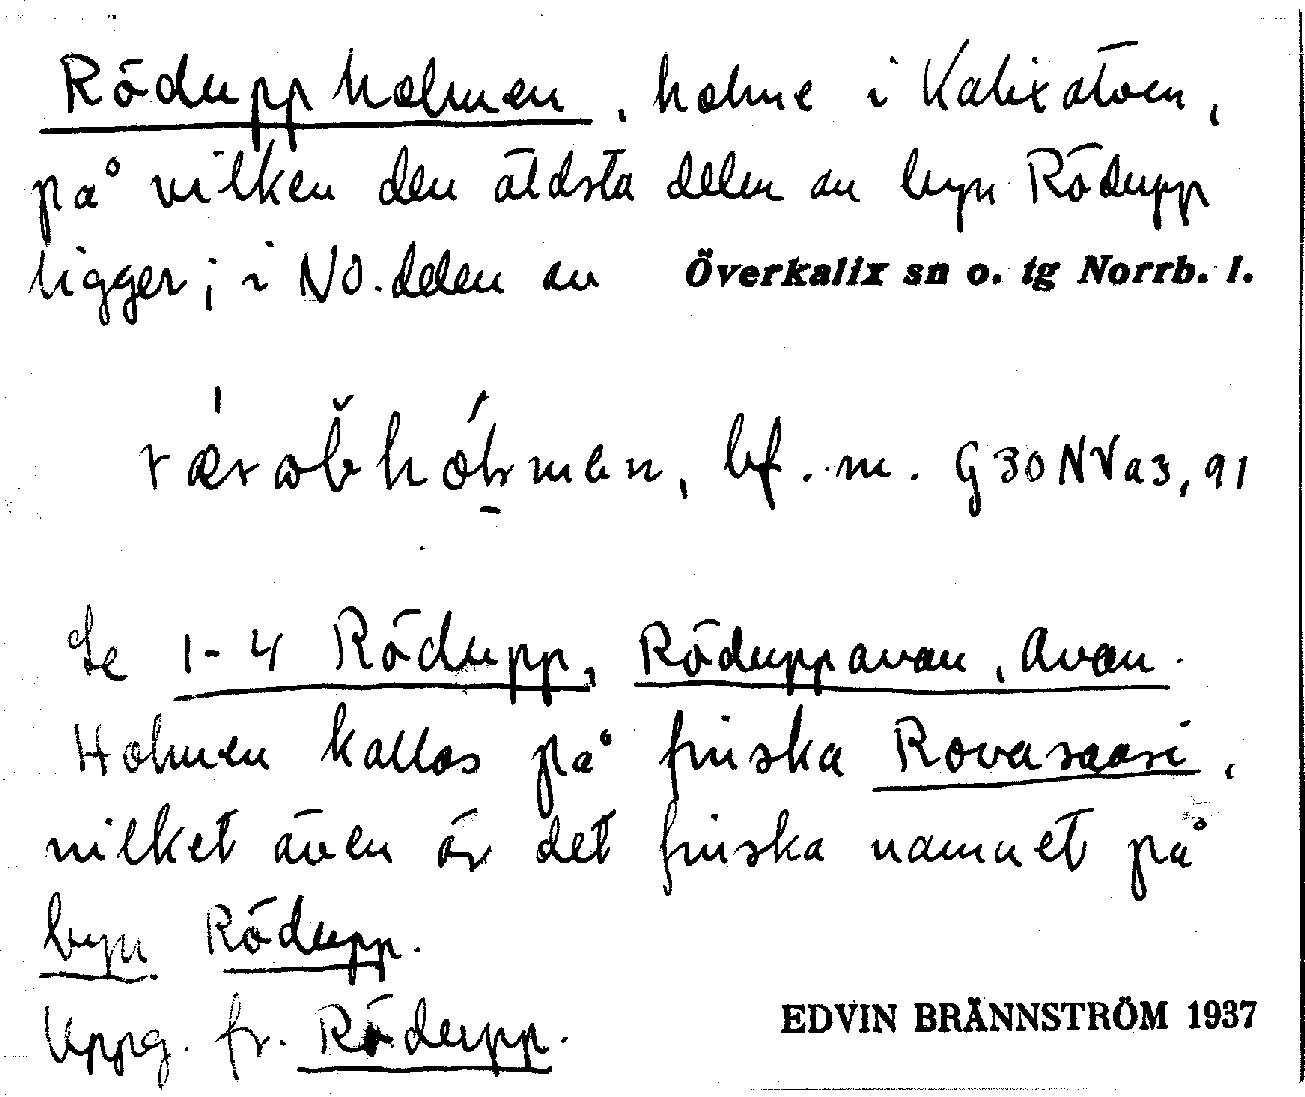 Röduppholmen, holme i Kalixälven,
på vilken den äldsta delen av byn Rödupp
ligger; i NO.delen av Överkalix sn o. tg Norrb. l.
bf. m. G30NVa3,91
Se 1-4 Rödupp, Röduppavan, Avan.
Holmen kallas på finska Rovasaari,
vilket även är det finska namnet på
byn Rödupp.
Uppg. fr. Rödupp.
EDVIN BRÄNNSTRÖM 1937